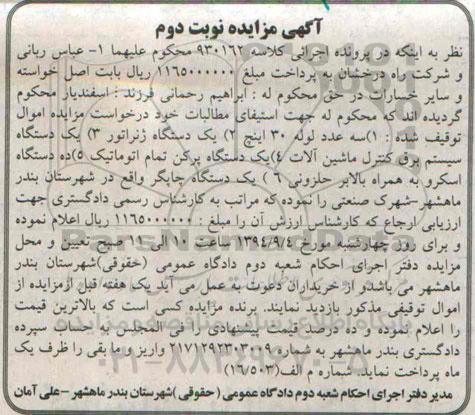 آگهی مزایده نوبت دوم
نظر به اینکه در پرونده اجرائی کلاسه ۹۳۰۱۶۲ محکوم علیهما ۱- عباس ربانی
و شرکت راه درخشان به پرداخت مبلغ ۱۱۶۵۰۰۰۰۰۰ ریال بابت اصل خواسته
و سایر خسارات در حق محکوم له : ابراهیم رحمانی فرزند : اسفندیار محکوم
گردیده اند که محکوم له جهت استیفای مطالبات خود درخواست مزایده اموال
توقیف شده : ۱)سه عدد لوله ۳۰ اینچ ۲) یک دستگاه ژنراتور ۳) یک دستگاه
سیستم برق کنترل ماشین آلات ۴)یک دستگاه پرکن تمام اتوماتیک ۵)ده دستگاه
اسکرو به همراه بالابر حلزونی ۶ ) یک دستگاه چاپگر واقع در شهرستان بندر
ماهشهر-شهرک صنعتی را نموده که مراتب به کارشناس رسمی دادگستری جهت
ارزیابی ارجاع که کارشناس ارزش آن را مبلغ : ۱۱۶۵۰۰۰۰۰۰ ریال اعلام نموده
و برای روز چهارشنبه مورخ ۱۳۹۴/۹/۴ ساعت ۱۰ الی ۱۱ صبح تعیین و محل
مزایده دفتر اجرای احکام شعبه دوم دادگاه عمومی (حقوقی)شهرستان بندر
ماهشهر می باشد از خریداران دعوت به عمل می آید یک هفته قبل از مزایده از
اموال توقیفی مذکور بازدید نمایند. برنده مزایده کسی است که بالاترین قیمت
را اعلام نموده و ده درصد قیمت پیشنهادی را فی المجلس به حساب سپرده
دادگستری بندر ماهشهر به شماره ۲۱۷۱۲۹۲۳۰۳۰۰۹ واریز و ما بقی را ظرف یک
ماه پرداخت نماید. شماره م الف(۱۶/۵۰۳)
مدیر دفتر اجرای احکام شعبه دوم دادگاه عمومی ( حقوقی )شهرستان بندر ماهشهر -علی آمان